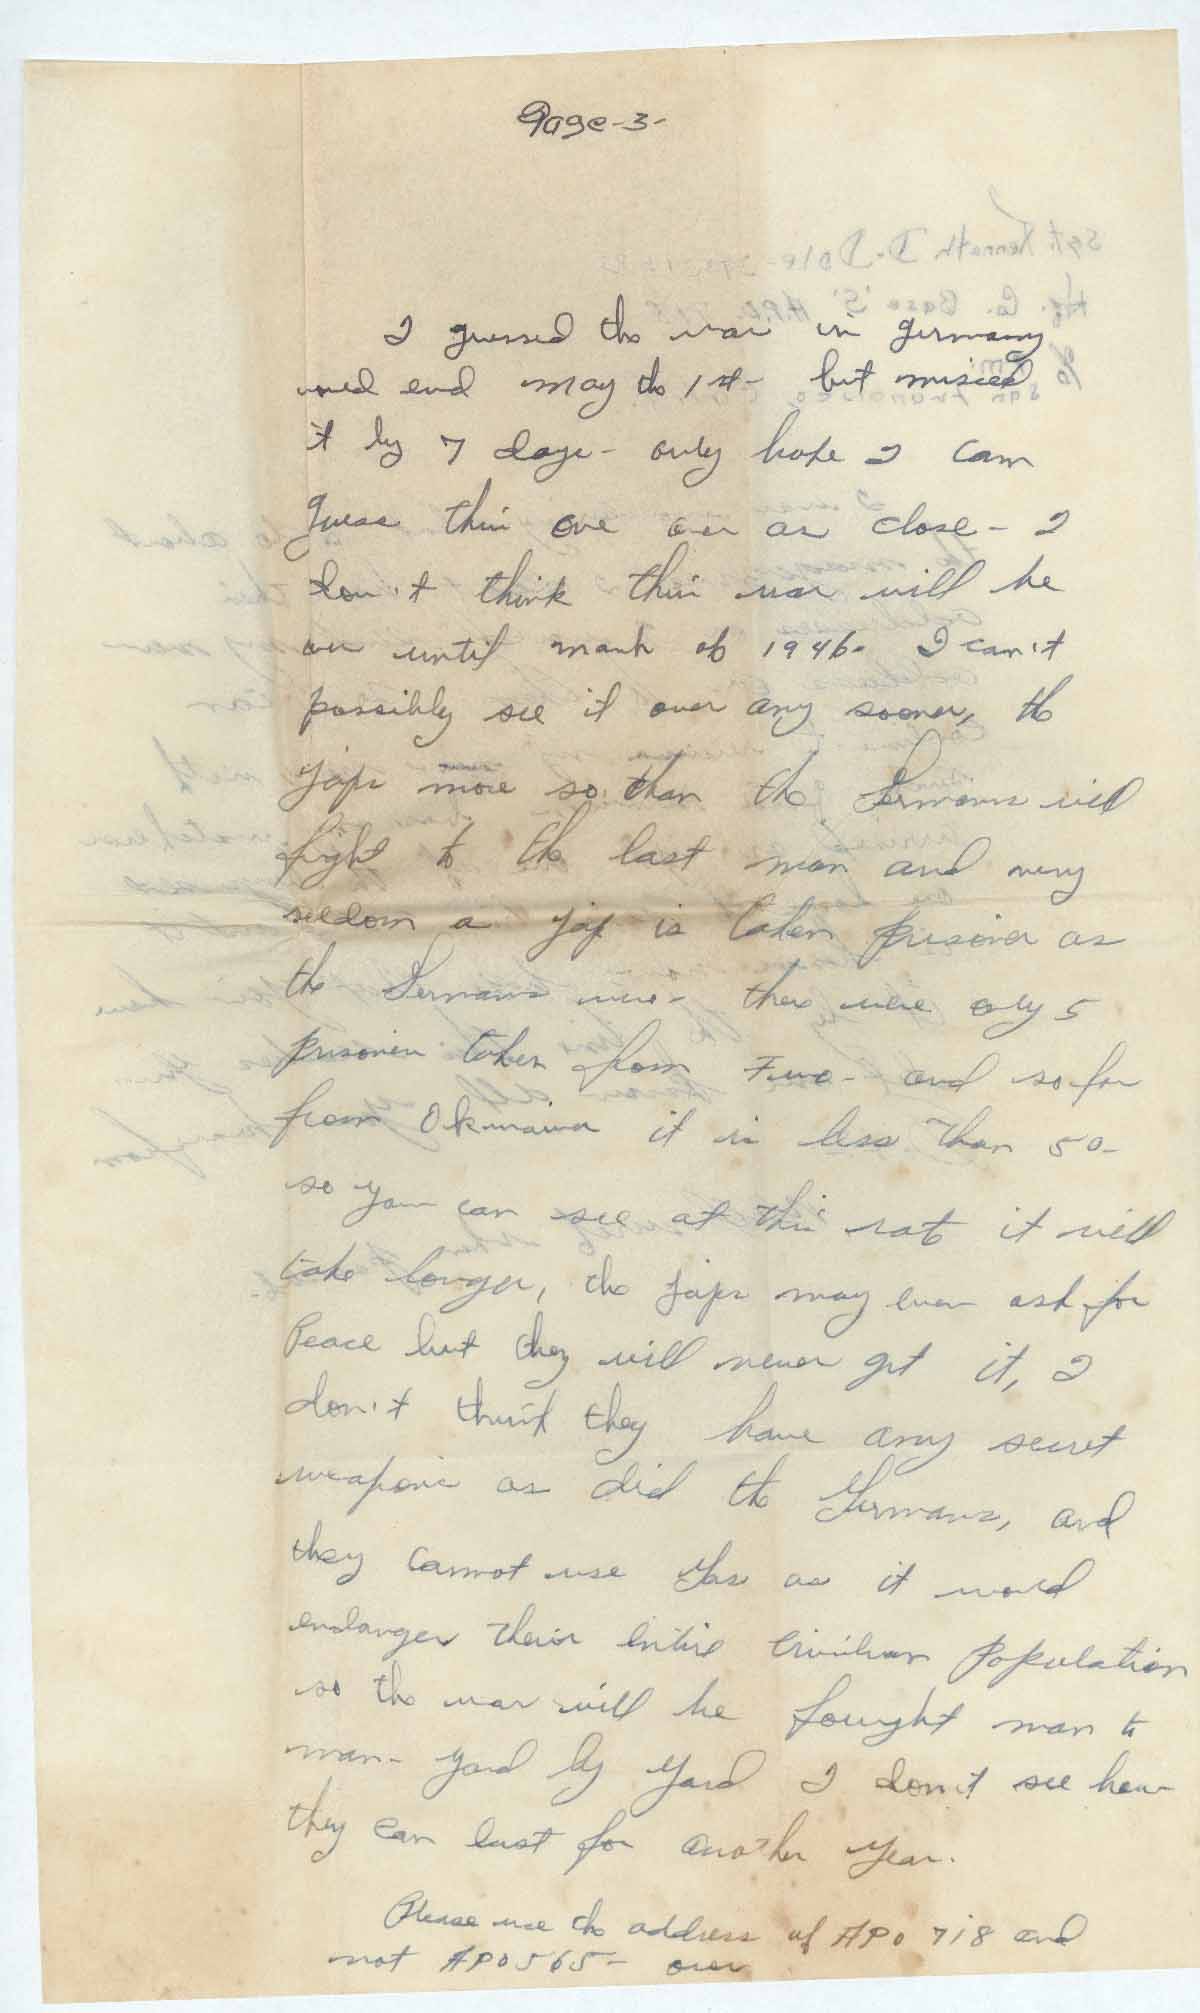 Page -3-
I guessed the war in Germany
would end May the 1st - but missed
it by 7 days - only hope I can
guess this one over as close - I
don't think this war will be
over until march of 1946. I can't
possibly see it over any sooner, the
Japs more so than the Germans will
fight to the last man and very
seldom a Jap is taken prisoner as
the Germans were - there were only 5
prisoners taken from Iwo - and so far
from Okinawa it is less than 50 -
so you can see at this rate it will
take longer, the Japs may even ask for
Peace but they will never get it, I
don't think they have any secret
weapons as did the Germans, and
they cannot use Gas as it would
endanger their entire Civilian Population
so the war will be fought man to
man - yard by yard I don't see how
they can last for another year.
Please use the address of APO 718 and
not APO 565 - over